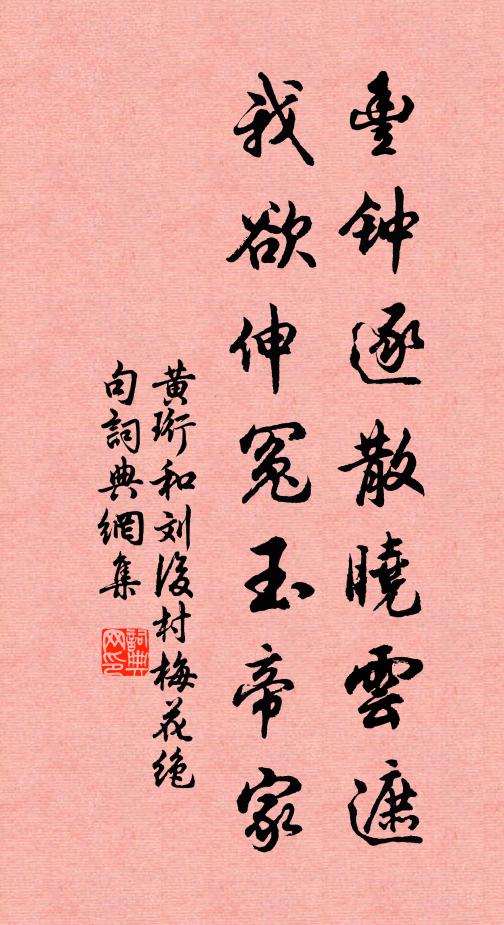 豐钟逐散曉雲遮
我欲伸冤玉帝家
黄珩和刘後村梅花绝
句詞典網集
詞典网印